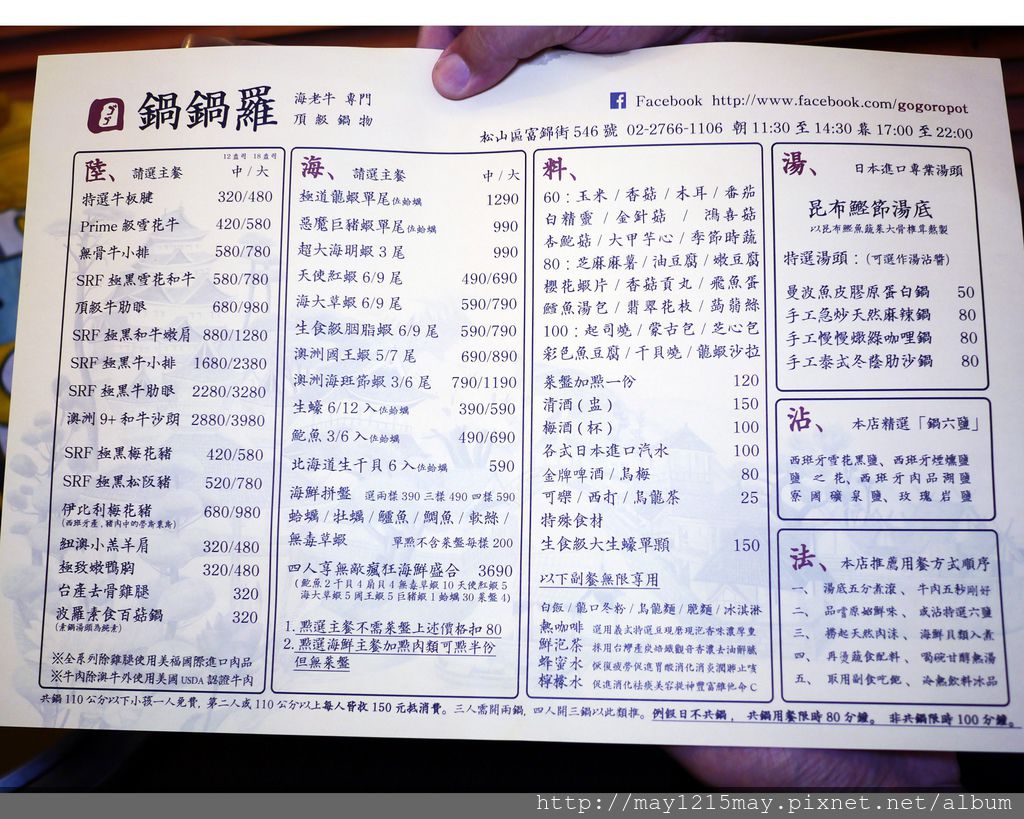 鍋鍋羅
海老牛 專門
頂級鍋物
Facebook http://www.facebook.com/gogoropot
松山區富錦街 546 號 02-2766-1106 朝 11:30 至 14:30 暮 17:00 至 22:00
陸、 請選主餐 中 / 大
12盎司 18盎司
特選牛板腱 320/480
Prime 級雪花牛 420/580
無骨牛小排 580/780
SRF 極黑雪花和牛 580/780
頂級牛肋眼 680/980
SRF 極黑和牛嫩肩 880/1280
SRF 極黑牛小排 1680/2380
SRF 極黑牛肋眼 2280/3280
澳洲 9+ 和牛沙朗 2880/3980
SRF 極黑梅花豬 420/580
SRF 極黑松阪豬 520/780
伊比利梅花豬 680/980
(西班牙產,豬肉中的勞斯萊斯)
紐澳小羔羊肩 320/480
極致嫩鴨胸 320/480
台產去骨雞腿 320
波羅素食百菇鍋 320
(素鍋湯頭為純素)
※全系列除雞腿使用美福國際進口肉品
※牛肉除澳牛外使用美國 USDA 認證牛肉
海、 請選主餐 中 / 大
極道龍蝦單尾佐蛤蠣 1290
惡魔巨豬蝦單尾佐蛤蠣 990
超大海明蝦 3 尾 990
天使紅蝦 6/9 尾 490/690
海大草蝦 6/9 尾 590/790
生食級胭脂蝦 6/9 尾 590/790
澳洲國王蝦 5/7 尾 690/890
澳洲海班節蝦 3/6 尾 790/1190
生蠔 6/12 入佐蛤蠣 390/590
鮑魚 3/6 入佐蛤蠣 490/690
北海道生干貝 6 入佐蛤蠣 590
海鮮拼盤 選兩樣 390 三樣 490 四樣 590
蛤蠣 / 牡蠣 / 鱸魚 / 鯛魚 / 軟絲 /
無毒草蝦 單點不含菜盤每樣 200
四人享無敵瘋狂海鮮盛合 3690
(鮑魚 2 干貝 4 扇貝 4 無毒草蝦 10 天使紅蝦 5
海大草蝦 5 國王蝦 5 巨豬蝦 1 蛤蠣 30 菜盤 4)
1. 點選主餐不需菜盤上述價格扣 80
2. 點選海鮮主餐加點肉類可點半份
但無菜盤
料、
60：玉米 / 香菇 / 木耳 / 番茄
白精靈 / 金針菇 / 鴻喜菇
杏鮑菇 / 大甲芋心 / 季節時蔬
80：芝麻麻薯 / 油豆腐 / 嫩豆腐
櫻花蝦片 / 香菇貢丸 / 飛魚蛋
鱈魚湯包 / 翡翠花枝 / 蒟蒻絲
100：起司燒 / 蒙古包 / 芝心包
彩色魚豆腐 / 干貝燒 / 龍蝦沙拉
菜盤加點一份 120
清酒 ( 盅 ) 150
梅酒 ( 杯 ) 100
各式日本進口汽水 100
金牌啤酒 / 烏梅 80
可樂 / 西打 / 烏龍茶 25
特殊食材
生食級大生蠔單顆 150
以下副餐無限享用
白飯 / 龍口冬粉 / 烏龍麵 / 脆麵 / 冰淇淋
熱咖啡 選用義式特選豆現磨現泡香味濃厚重
鮮泡茶 採用台灣產炭焙鐵觀音香濃去油解膩
蜂蜜水 恢復疲勞促進胃酸消化消炎潤肺止咳
檸檬水 促進消化祛痰美容提神豐富維他命 C
湯、 日本進口專業湯頭
昆布鰹節湯底
以昆布鰹魚蔬菜大骨椎茸熬製
特選湯頭：(可選作湯沾醬)
曼波魚皮膠原蛋白鍋 50
手工急炒天然麻辣鍋 80
手工慢慢燉綠咖哩鍋 80
手工泰式冬蔭肋沙鍋 80
沾、 本店精選「鍋六鹽」
西班牙雪花黑鹽、西班牙煙燻鹽
鹽之花、西班牙肉品湖鹽
寮國礦泉鹽、玫瑰岩鹽
法、 本店推薦用餐方式順序
一、 湯底五分煮滾、牛肉五秒剛好
二、 品嚐原始鮮味、或沾特選六鹽
三、 撈起天然肉沫、海鮮貝類入煮
四、 再燙蔬食配料、喝碗甘醇熱湯
五、 取用副食吃飽、冷熱飲料冰品
共鍋 110 公分以下小孩一人免費, 第二人或 110 公分以上每人酌收 150 元抵消費。三人需開兩鍋, 四人開三鍋以此類推。例假日不共鍋, 共鍋用餐限時 80 分鐘。非共鍋限時 100 分鐘。
http://may1215may.pixnet.net/album